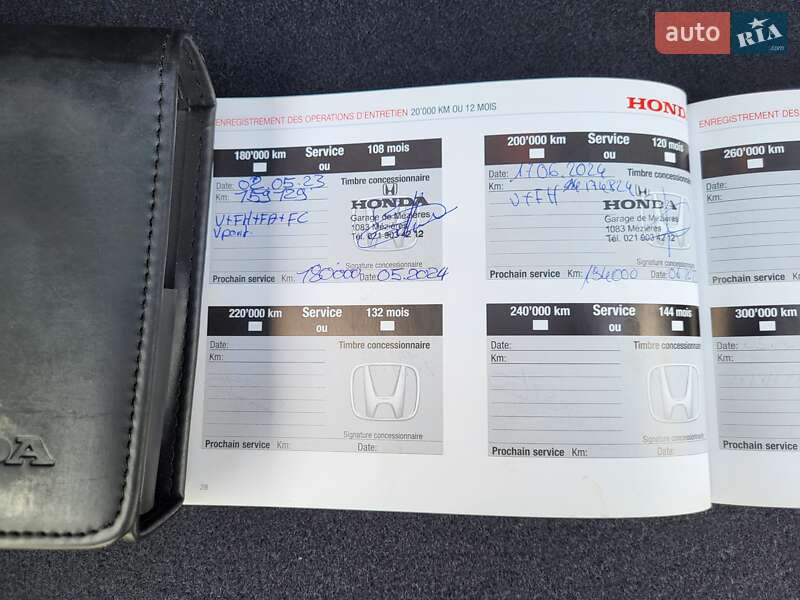 auto RIA.com
ENREGISTREMENT DES OPERATIONS D'ENTRETIEN 20'000 KM OU 12 MOIS
HONDA
180'000 km Service ou 108 mois
Date: 02.05.23 Timbre concessionnaire
Km: 159'129
V+FH+FA+FC
HONDA
Garage de Mézières
1083 Mézières
Tél. 021 903 42 12
Signature concessionnaire
Prochain service Km: 180'000 Date: 05.2024
200'000 km Service ou 120 mois
Date: 17.06.2024 Timbre concessionnaire
Km:
V+FH
HONDA
Garage de Mézières
1083 Mézières
Tél. 021 903 42 12
Signature concessionnaire
Prochain service Km: Date:
220'000 km Service ou 132 mois
Date: Timbre concessionnaire
Km:
Signature concessionnaire
Prochain service Km: Date:
240'000 km Service ou 144 mois
Date: Timbre concessionnaire
Km:
Signature concessionnaire
Prochain service Km: Date:
28
ENREGISTREMENT DES
260'000 km
Date:
Km:
Prochain service
300'000 km
Date:
Km:
Prochain service